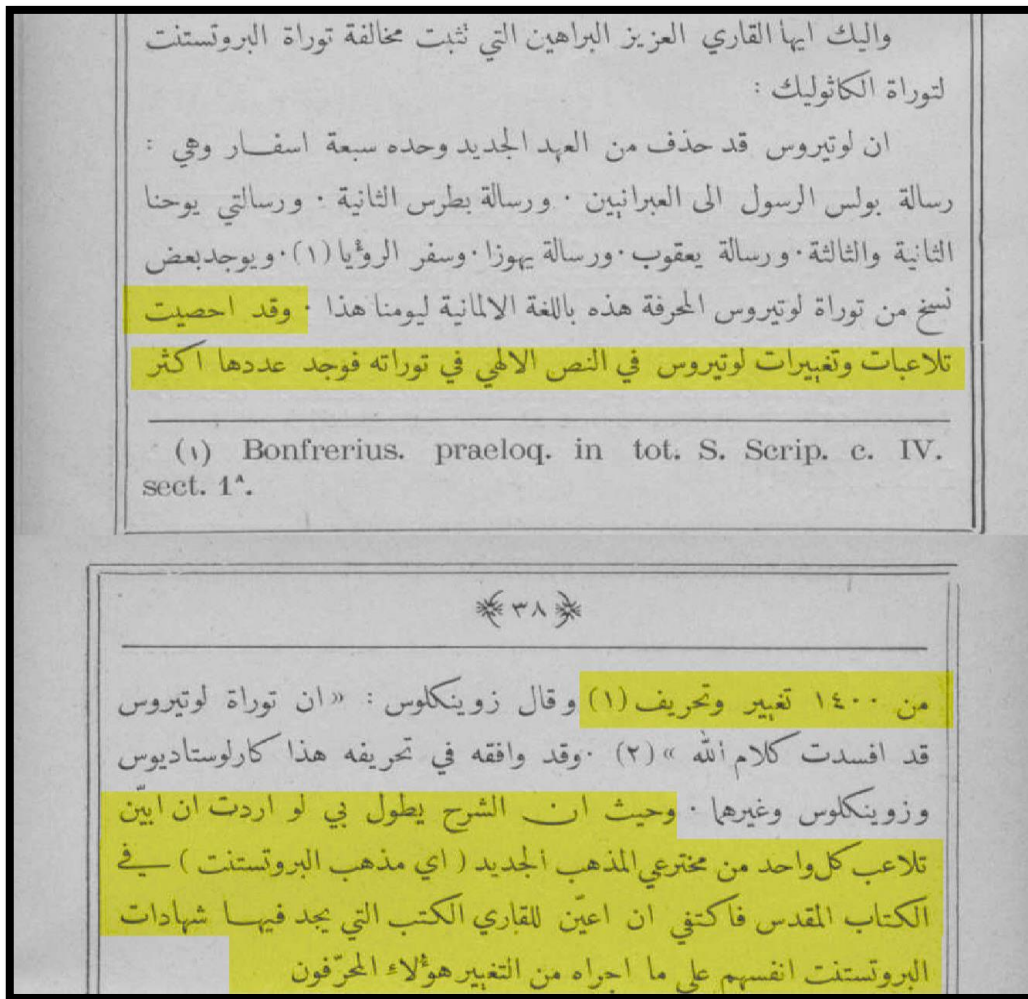 واليك ايها القاري العزيز البراهين التي تثبت مخالفة توراة البروتستنت
لتوراة الكاثوليك :
ان لوتيروس قد حذف من العهد الجديد وحده سبعة اسفار وهي :
رسالة بولس الرسول الى العبرانيين · ورسالة بطرس الثانية · ورسالتي يوحنا
الثانية والثالثة · ورسالة يعقوب · ورسالة يهوزا · وسفر الرؤيا (١) · ويوجد بعض
نسخ من توراة لوتيروس المحرفة هذه باللغة الالمانية ليومنا هذا · وقد احصيت
تلاعبات وتغييرات لوتيروس في النص الالهي في توراته فوجد عددها اكثر
(١) Bonfrerius. praeloq. in tot. S. Scrip. c. IV.
sect. 1ᴬ.
٣٨
من ١٤٠٠ تغيير وتحريف (١) وقال زوينكلوس : «ان توراة لوتيروس
قد افسدت كلام الله » (٢) · وقد وافقه في تحريفه هذا كارلوستاديوس
وزوينكلوس وغيرهما · وحيث ان الشرح يطول بي لو اردت ان ابيّن
تلاعب كل واحد من مخترعي المذهب الجديد ( اي مذهب البروتستنت ) في
الكتاب المقدس فاكتفي ان اعيّن للقاري الكتب التي يجد فيها شهادات
البروتستنت انفسهم على ما اجراه من التغيير هؤلاء المحرّفون